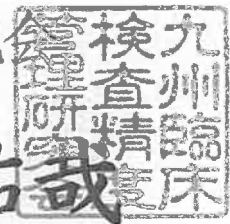 九州臨床
検査精度
管理研究
哉